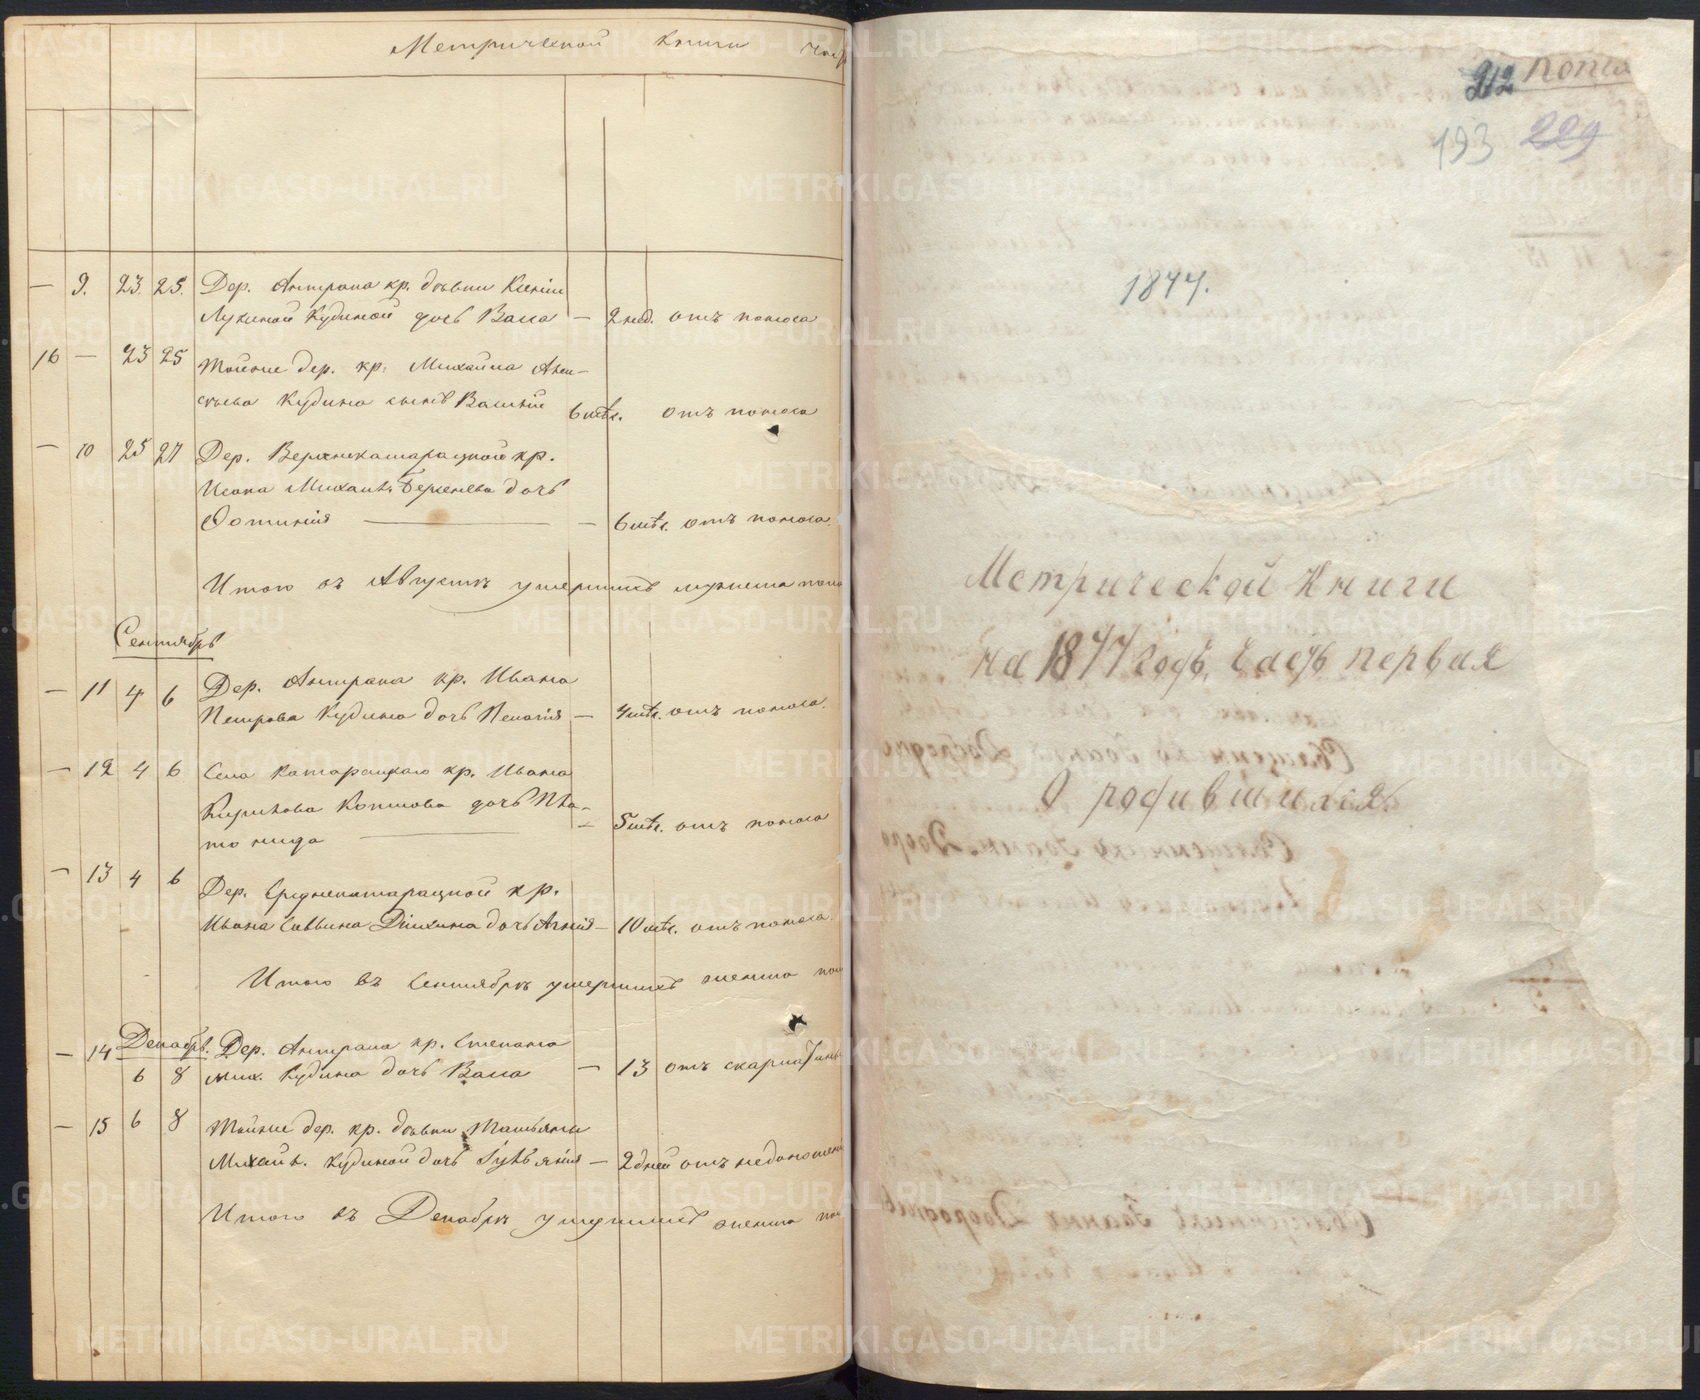 Метрической книги час
— 9. 23. 25. Дер. Антрака кр. дѣвки Ксеніи
Лукиной Кудиной дочь Васса — 2 нед. отъ поноса
16 — 23 25 Тойже дер. кр. Михаила
Кудина сынъ Василій 6 мѣс. отъ поноса
— 10 25 27 Дер. Верхнекатарацкой кр.
Исака Михаил. дочь
Фотинія — 6 мѣс. отъ поноса.
Итого въ Августѣ умершихъ мужеска
Сентябрь
— 11 4 6 Дер. Антрака кр. Ивана
Петрова Кудина дочь — 4 мѣс. отъ поноса.
— 12 4 6 Села Катарацкаго кр. Ивана
Кирикова Коптова дочь
— 5 мѣс. отъ поноса
— 13 4 6 Дер. Среднекатарацкой кр.
Ивана Саввина дочь Агнія — 10 мѣс. отъ поноса.
Итого въ Сентябрѣ умершихъ женска пол
— 14 Декабрь. Дер. Антрака кр. Степана
6 8 Мих. Кудина дочь Васса — 13 отъ скарлатины
— 15 6 8 Тойже дер. кр. дѣвки Татьяны
Михайл. Кудиной дочь — 2 дней отъ недоношен
Итого въ Декабрѣ умершихъ женска пол
212 копія
193 229
1877.
Метрической Книги
На 1877 годъ, Часть первая
О родившихся
METRIKI.GASO-URAL.RU